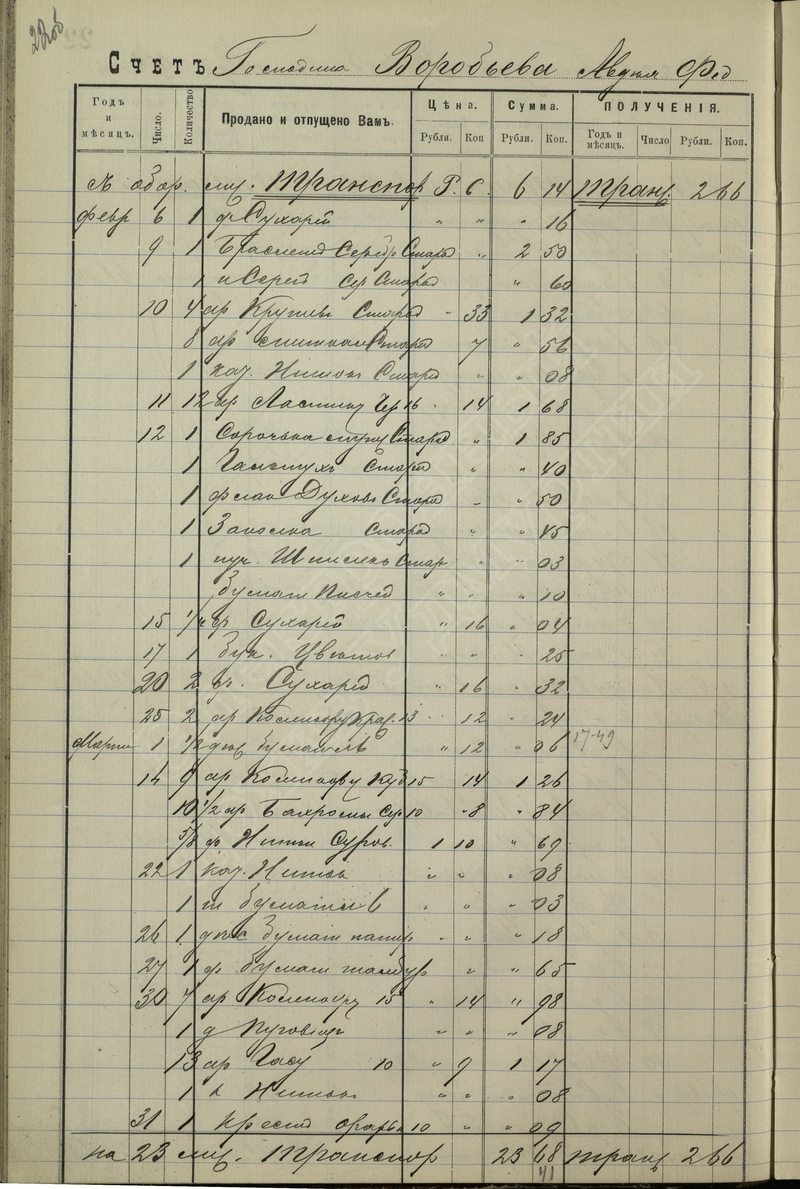 22 об
СЧЕТЪ Господина Воробьева Авдея Фед
Годъ и мѣсяцъ. Число. Количество Продано и отпущено Вамъ. Цѣна. Сумма. ПОЛУЧЕНІЯ.
Рубли. Коп Рубли. Коп. Годъ и мѣсяцъ. Число Рубли. Коп.
обор. лиц. Транспор Р. С. 6 14 Тран. 266
февр 6 1 ф Сухарей " " " 16
9 1 Браслетъ Серебр Старо " 2 50
1 п Серег Сер Старо " 60
10 4 ар Кружев Старо - 33 1 32
8 ар Старо 7 " 56
1 кат. Ниток Старо " " 08
11 12 ар Ластику Чер 16 . 14 1 68
12 1 Сорочька Старо " 1 85
1 Галстухъ Старо " " 40
1 флак Духовъ Старо " " 50
1 Заколка Старо " " 45
1 пуч. Шпилекъ Стар " " 03
бумаги Писчей " " " 10
15 1/4 ф Сухарей " 16 " 04
17 1 бук. Цвѣтов " " - 25
20 2 ф. Сухарей " 16 " 32
25 2 ар 13 " 12 " 24
Март 1 1/2 дюж бумаги " 12 " 06 17-49
14 9 ар 15 14 1 26
10 1/2 ар Бахромы Сур 10 " 8 " 84
5/8 ф Ниток Суров. 1 10 " 69
22 1 кат. Ниток " " " 08
1 м бумаги " " " 03
26 1 бумаги папир " " " 18
27 1 ф бумаги тамбур " " 65
30 7 ар 15 " 14 " 98
1 д Пуговицъ " " " 08
13 ар Тасу 10 " 9 1 17
1 к Ниток " " " 08
31 1 Крестъ 10 " " 09
на 23 лиц. Транспор 23 68 тран 266
41